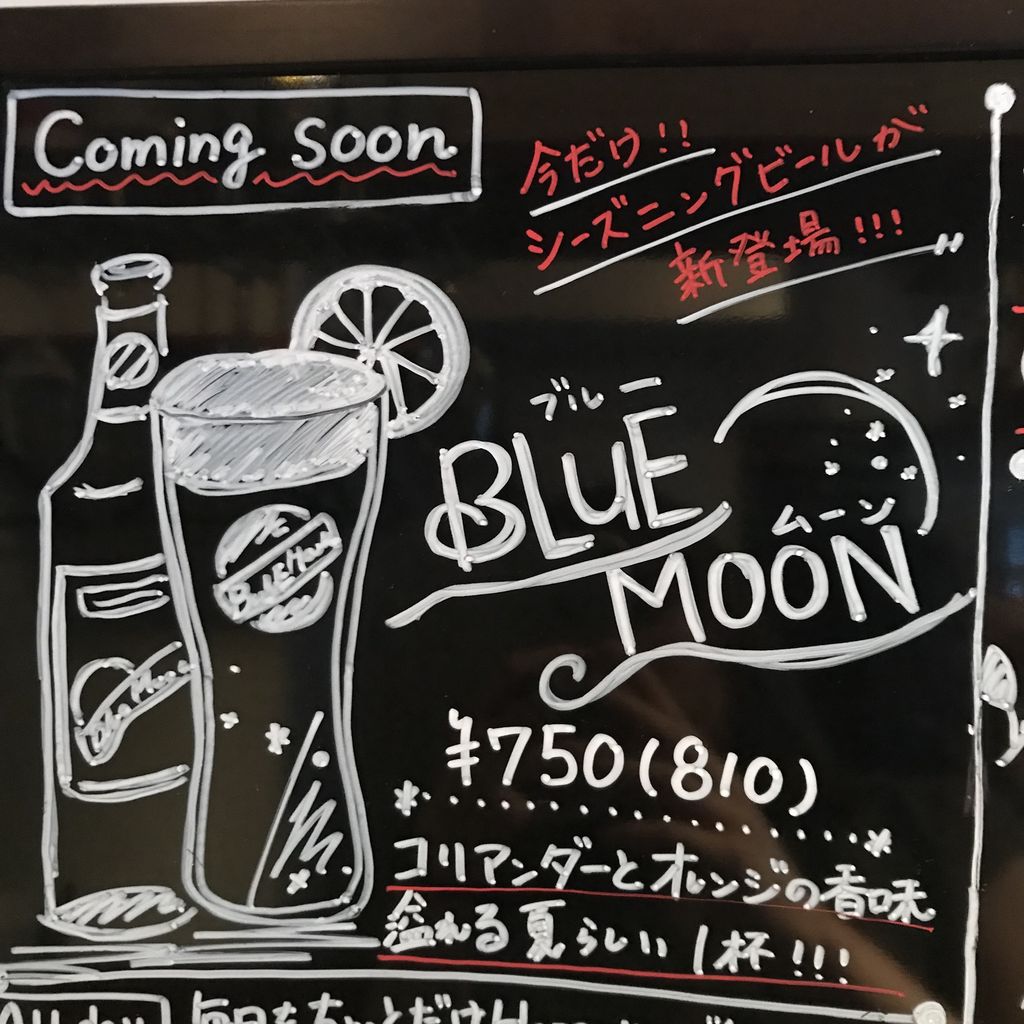 Coming soon
今だけ!!
シーズニングビールが
新登場!!!
ブルー
BLUE
ムーン
MOON
¥750(810)
コリアンダーとオレンジの香味
溢れる夏らしい1杯!!!
All day
毎日をちょっとだけ